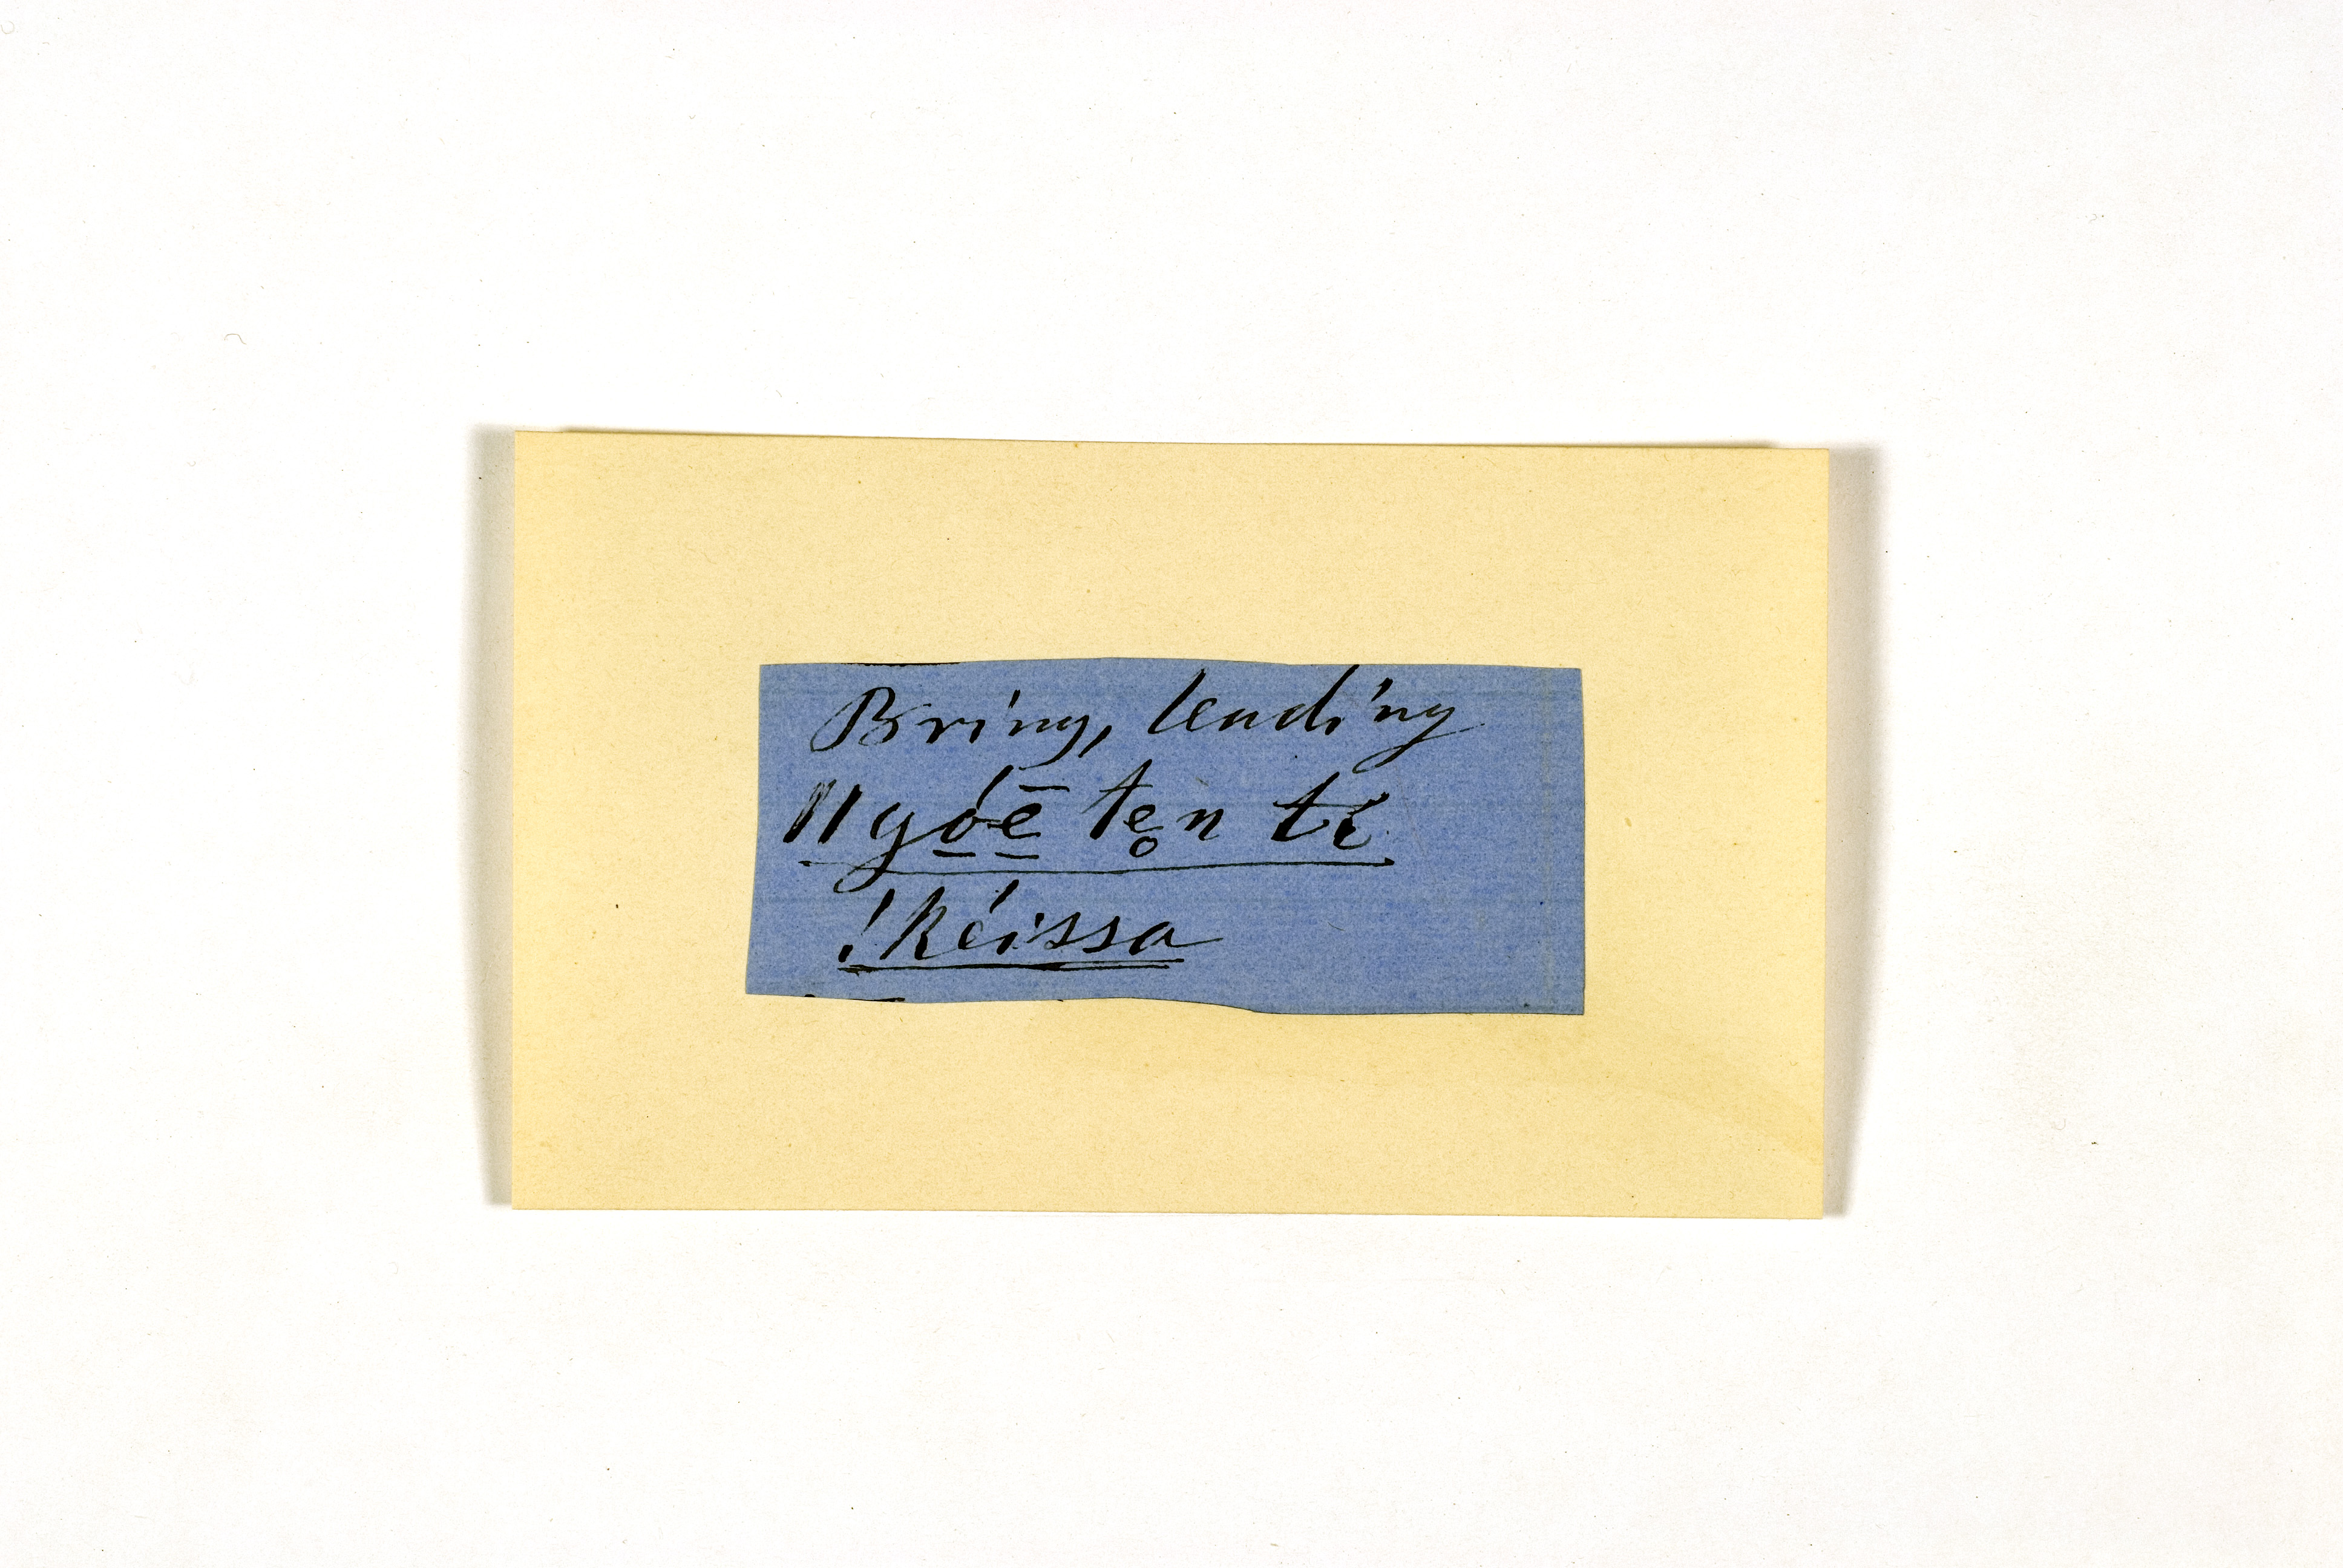 Bring, leading
ǁgó̱ē̱ te̥n tí
!kéissa